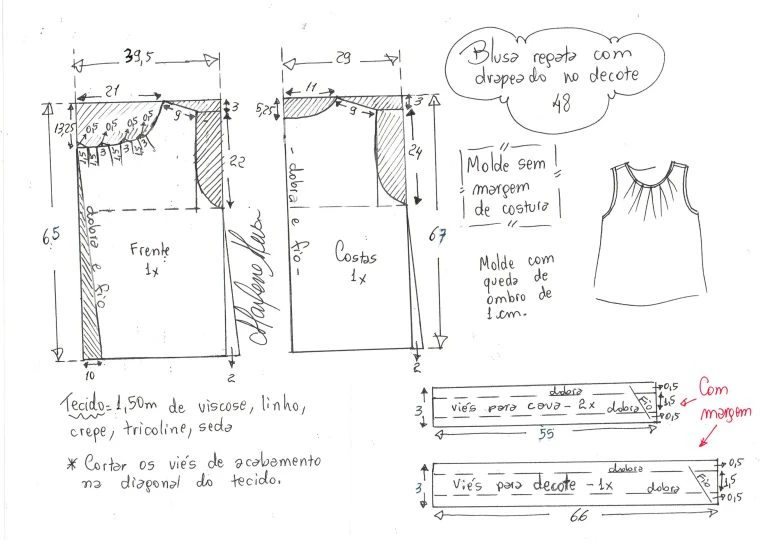 Blusa regata com
drapeado no decote
48
39,5
21
13,25
0,5 0,5 0,5 0,5
9
3
22
1,5 1,5 3 1,5 3 1,5
65
dobra e fio
Frente
1x
10
2
29
11
5,25
9
3
24
- dobra e fio -
67
Costas
1x
2
Molde sem
margem
de costura
Molde com
queda de
ombro de
1 cm.
Tecido = 1,50m de viscose, linho,
crepe, tricoline, seda
* Cortar os viés de acabamento
na diagonal do tecido.
3
dobra
viés para cava - 2x dobra
Fio
0,5
1,5
0,5
55
Com
margem
3
dobra
viés para decote - 1x dobra
Fio
0,5
1,5
0,5
66